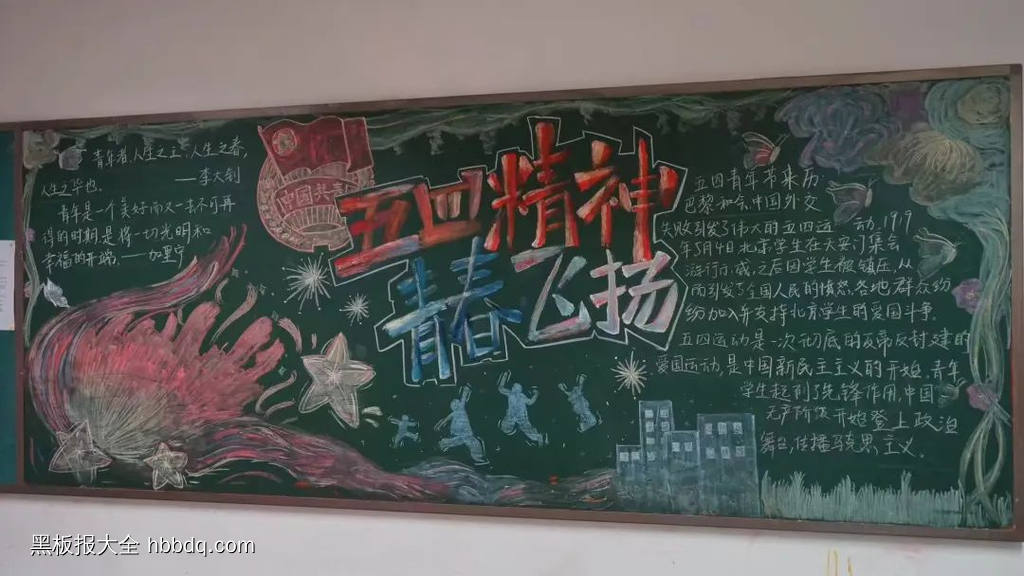 青年者,人生之王,人生之春,
人生之华也。
——李大钊
青年是一个美好而又一去不可再
得的时期,是将一切光明和
幸福的开端。——加里宁
中国共青
五四精神
青春飞扬
五四青年节来历
巴黎和会中国外交
失败引发了伟大的五四运动,1919
年5月4日北京学生在天安门集会
游行示威,之后因学生被镇压,从
而引发了全国人民的愤怒,各地群众纷
纷加入并支持北京学生的爱国斗争。
五四运动是一次彻底的反帝反封建的
爱国运动,是中国新民主主义的开始,青年
学生起到了先锋作用,中国
无产阶级开始登上政治
舞台,传播马克思主义。
黑板报大全 hbbdq.com